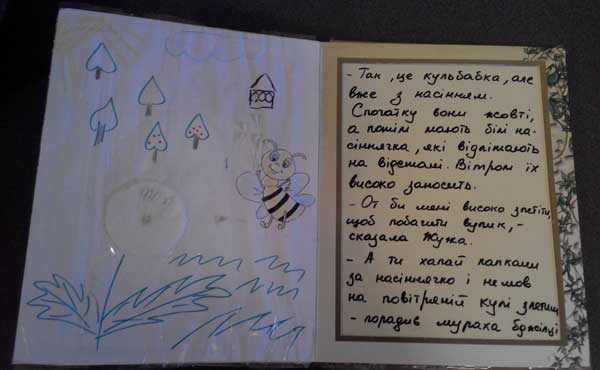 - Так, це кульбабка, але
вже з насінням.
Спочатку вони жовті,
а потім мають білі на-
сіннячка, які відлітають
на відстані. Вітром їх
високо заносить.
- От би мені високо злетіти,
щоб побачити вулик, -
сказала Жужа.
- А ти хапай лапками
за насіннячко і немов
на повітряній кулі злетиш
- порадив мураха бджілці